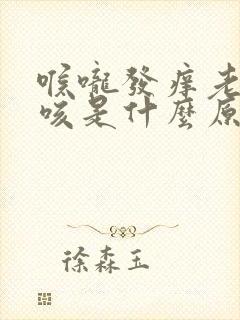 喉嚨發痒老
咳是什麼原
徐森玉